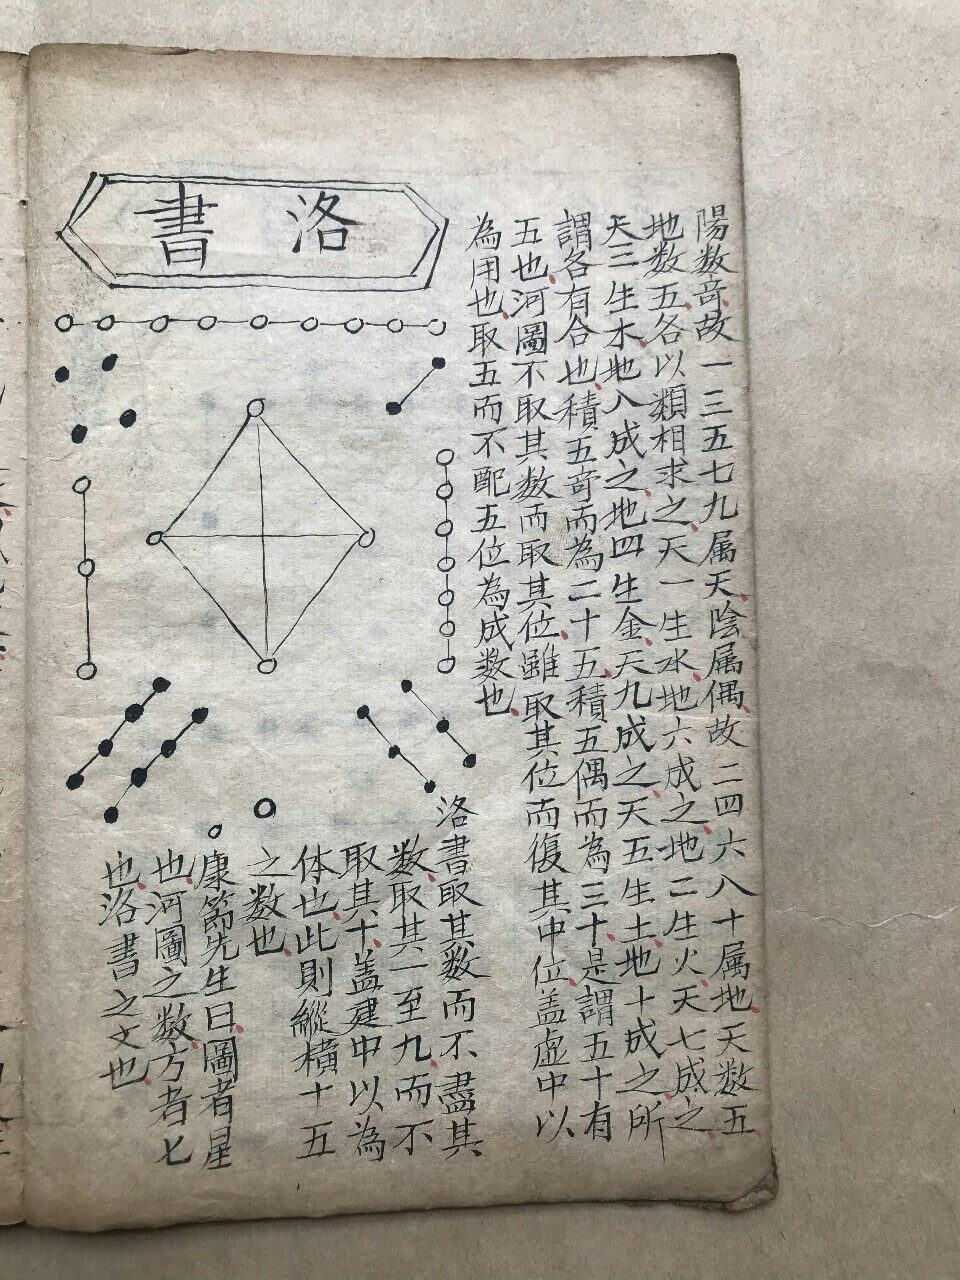 陽数竒故一三五七九属天陰属偶故二四六八十属地天数五
地数五各以類相求之天一生水地六成之地二生火天七成之
天三生木地八成之地四生金天九成之天五生土地十成之所
謂各有合也積五竒而為二十五積五偶而為三十是謂五十有
五也河圖不取其数而取其位雖取其位而復其中位盖虚中以
為用也取五而不配五位為成数也
洛書
洛書取其数而不盡其
数取其一至九而不
取其十盖建中以為
体也此則縱橫十五
之数也
康節先生曰圖者星
也河圖之数方者七
也洛書之文也